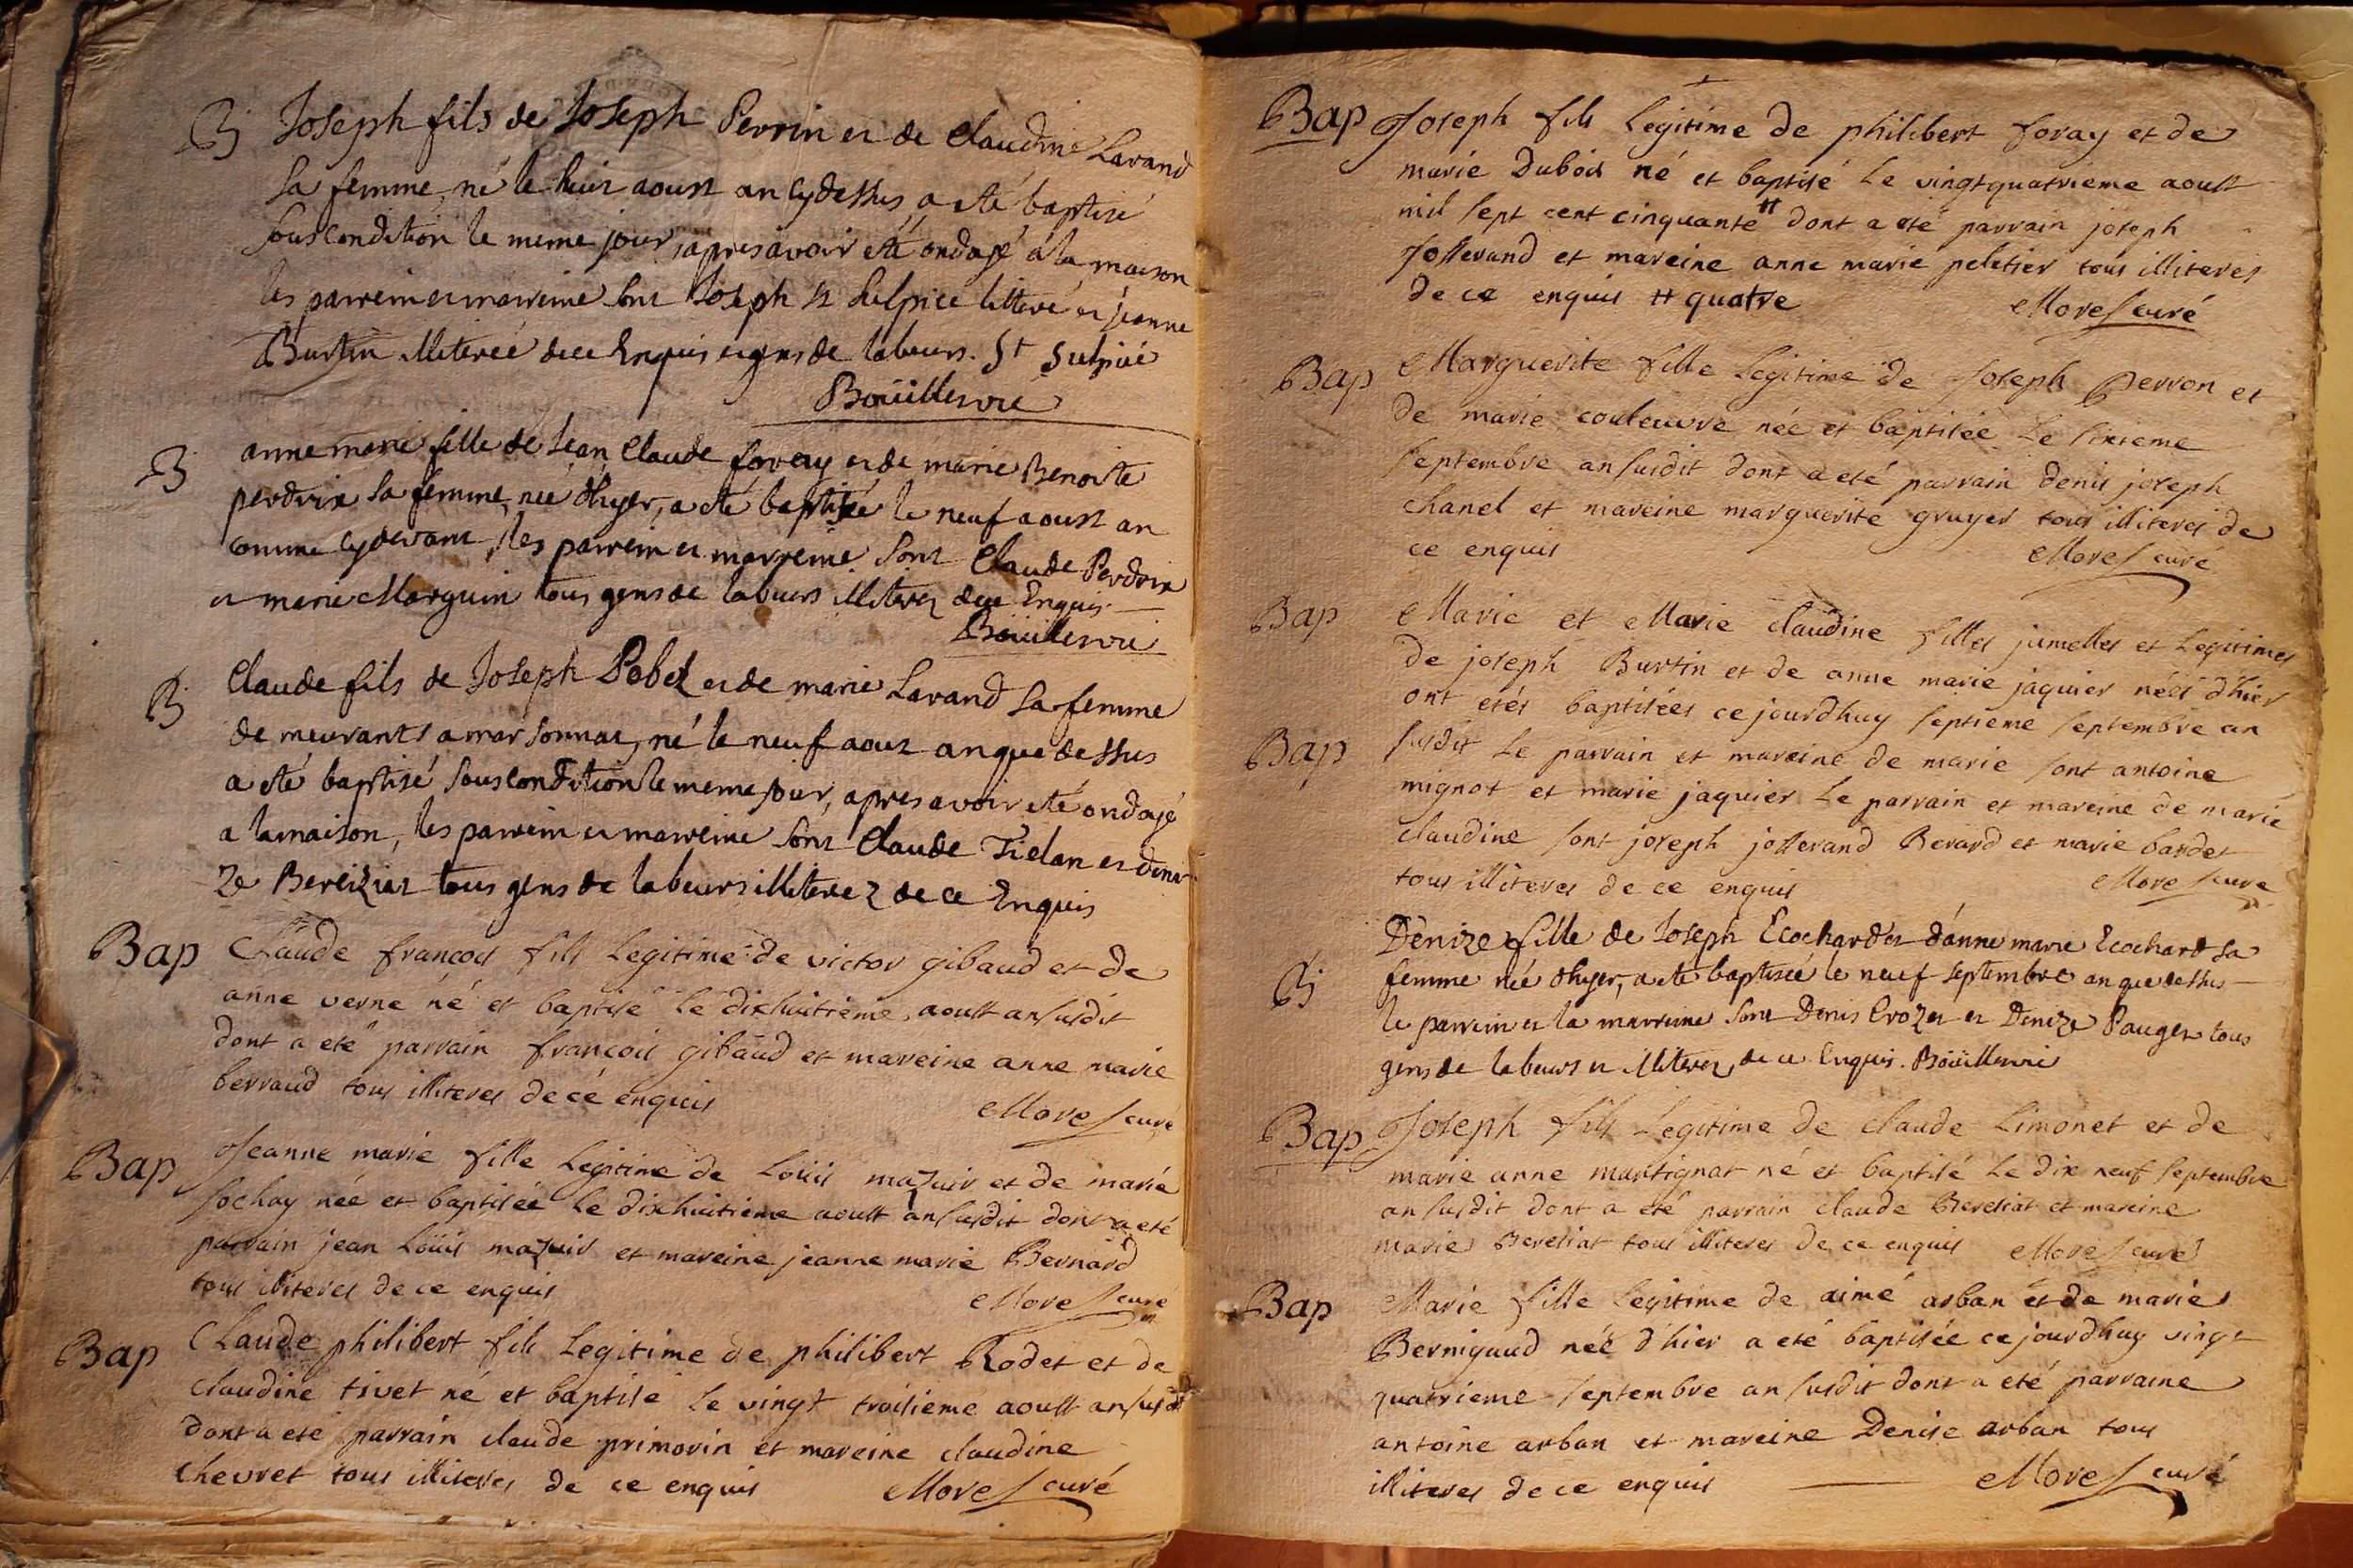 B
Joseph fils de Joseph Perrin et de Claudine Lavand
sa femme, né le huit aoust an cydessus a eté baptisé
sous condition le meme jour, apres avoir eté ondoyé a la maison
les parrein et marreine sont Joseph St Sulpice litteré et jeanne
Burtin illiterée de ce Enquis et gens de labeurs. St Sulpice
Boüillet vic
B
anne marie fille de Jean Claude foray et de marie Benoite
perdrix sa femme, née d'hyer, a eté baptisée le neuf aoust an
comme cydevant, les parrein et marreine sont Claude Perdrix
et marie Marguin tous gens de labeurs illiterez de ce Enquis
B
Claude fils de Joseph Pobel et de marie Lavand sa femme
demeurants a marsonnas, né le neuf aoust an que dessus
a eté baptisé sous condition le meme jour, apres avoir eté ondoyé
a la maison, les parrein et marreine sont Claude et deni
ze Bereiziat tous gens de labeurs illiterez de ce Enquis
Bap
Claude françois fils legitime de victor gibaud et de
anne verne né et baptisé le dixhuitieme aoust an susdit
dont a eté parrain françois gibaud et mareine anne marie
berraud tous illiteres de ce enquis
Morel curé
Bap
Jeanne marie fille legitime de Loüis mazuir et de marie
sochay née et baptisée le dixhuitieme aoust an susdit dont a eté
parrain jean Loüis mazuir et mareine jeanne marie Bernard
tous illiteres de ce enquis
Morel curé
Bap
Claude philibert fils legitime de philibert Rodet et de
claudine tivet né et baptisé le vingt troisieme aoust an susdit
dont a eté parrain claude primorin et mareine claudine
chevret tous illiteres de ce enquis
Morel curé
Bap
Joseph fils legitime de philibert foray et de
marie Dubois né et baptisé le vingtquatrieme aoust
mil sept cent cinquante # dont a eté parrain joseph
josserand et mareine anne marie peletier tous illiteres
de ce enquis # quatre
Morel curé
Bap
Marguerite fille legitime de Joseph perron et
de marie couleuvre née et baptisée le sixieme
septembre an susdit dont a eté parrain denis joseph
chanel et mareine marguerite gruyer tous illiteres de
ce enquis
Morel curé
Bap
Marie et Marie claudine filles jumelles et legitimes
de joseph Burtin et de anne marie jaquier nées d'hier
ont etés baptisées ce jourdhuy septieme septembre an
Bap
susdit le parrain et mareine de marie sont antoine
mignot et marie jaquier le parrain et mareine de marie
claudine sont joseph josserand Berard et marie bardet
tous illiteres de ce enquis
Morel curé
B
Denize fille de Joseph Ecochard et d'anne marie Ecochard sa
femme née d'hyer, a eté baptisée le neuf septembre an que dessus
le parrein et la marreine sont Denis Crozet et Denize Pauget tous
gens de labeurs et illiterez de ce Enquis. Boüillet vic
Bap
Joseph fils legitime de claude Limonet et de
marie anne martignat né et baptisé le dix neuf septembre
an susdit dont a eté parrain claude Beresiat et mareine
marie Beresiat tous illiteres de ce enquis Morel curé
Bap
Marie fille legitime de aimé arban et de marie
Bernigaud née d'hier a eté baptisée ce jourdhuy vingt
quatrieme septembre an susdit dont a eté parraine
antoine arban et mareine Denise arban tous
illiteres de ce enquis
Morel curé